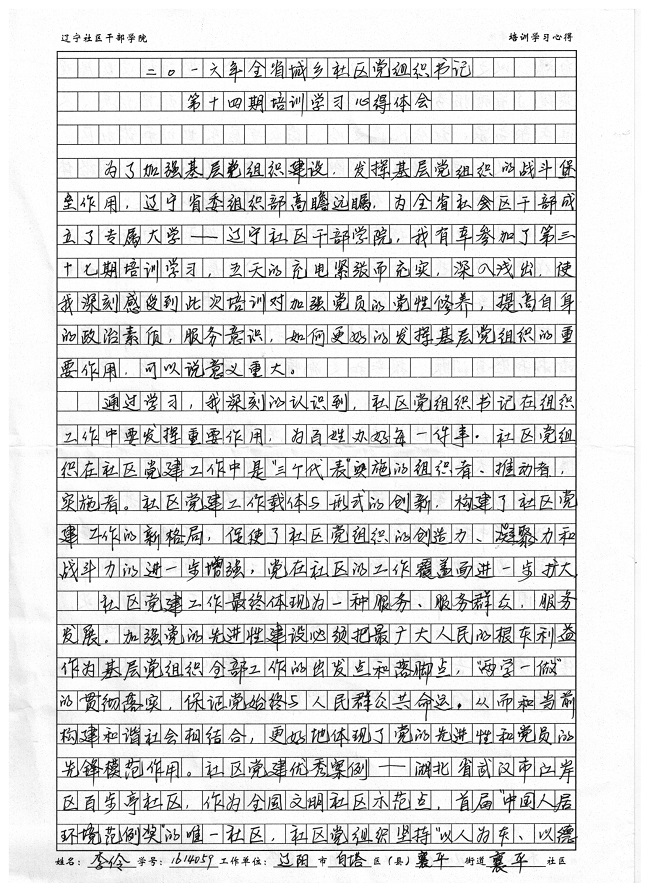 辽宁社区干部学院 培训学习心得
二〇一六年全省城乡社区党组织书记
第十四期培训学习心得体会
为了加强基层党组织建设，发挥基层党组织的战斗堡
垒作用，辽宁省委组织部高瞻远瞩，为全省社会区干部成
立了专属大学——辽宁社区干部学院，我有幸参加了第三
十七期培训学习，五天的充电紧张而充实，深入浅出，使
我深刻感受到此次培训对加强党员的党性修养，提高自身
的政治素质，服务意识，如何更好的发挥基层党组织的重
要作用，可以说意义重大。
通过学习，我深刻的认识到，社区党组织书记在组织
工作中要发挥重要作用，为百姓办好每一件事。社区党组
织在社区党建工作中是“三个代表”实施的组织者、推动者，
实施者。社区党建工作载体与形式的创新，构建了社区党
建工作的新格局，促使了社区党组织的创造力、凝聚力和
战斗力的进一步增强，党在社区的工作覆盖面进一步扩大
社区党建工作最终体现为一种服务、服务群众，服务
发展。加强党的先进性建设必须把最广大人民的根本利益
作为基层党组织全部工作的出发点和落脚点，“两学一做”
的贯彻落实，保证党始终与人民群众共命运。从而和当前
构建和谐社会相结合，更好地体现了党的先进性和党员的
先锋模范作用。社区党建优秀案例——湖北省武汉市江岸
区百步亭社区，作为全国文明社区示范点，首届“中国人居
环境范例奖”的唯一社区，社区党组织坚持“以人为本、以德
姓名：李伶 学号：1614059 工作单位：辽阳市白塔区（县）襄平街道襄平社区